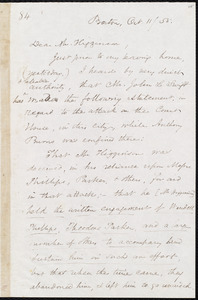 84.
Boston, Oct. 11 '58.
Dear Mr. Higginson,
Just prior to my leaving home
(yesterday) I heard by very direct
& reliable
authority, that Mr. John
has made the following statement, in
regard to the attack on the Court
House, in this city, while Anthony
Burns was confined there.
That Mr. Higginson was
deceived, in his reliance upon Messrs
Phillips, Parker & others, for aid
in that attack,
held the written engagements of Wendell
Phillips, Theodore Parker, and a
number of others to accompany him &
sustain him in such an effort.
But when the time came, they
abandoned him,